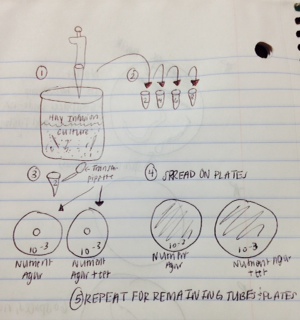 ①
②
HAY INFUSION
CULTURE
③
Transfer
pipette
④ SPREAD ON PLATES
10-3
10-3
10-3
10-3
Nutrient
Agar
Nutrient
Agar + tet
Nutrient
Agar
Nutrient Agar
+ tet
⑤ REPEAT FOR REMAINING TUBES + PLATES